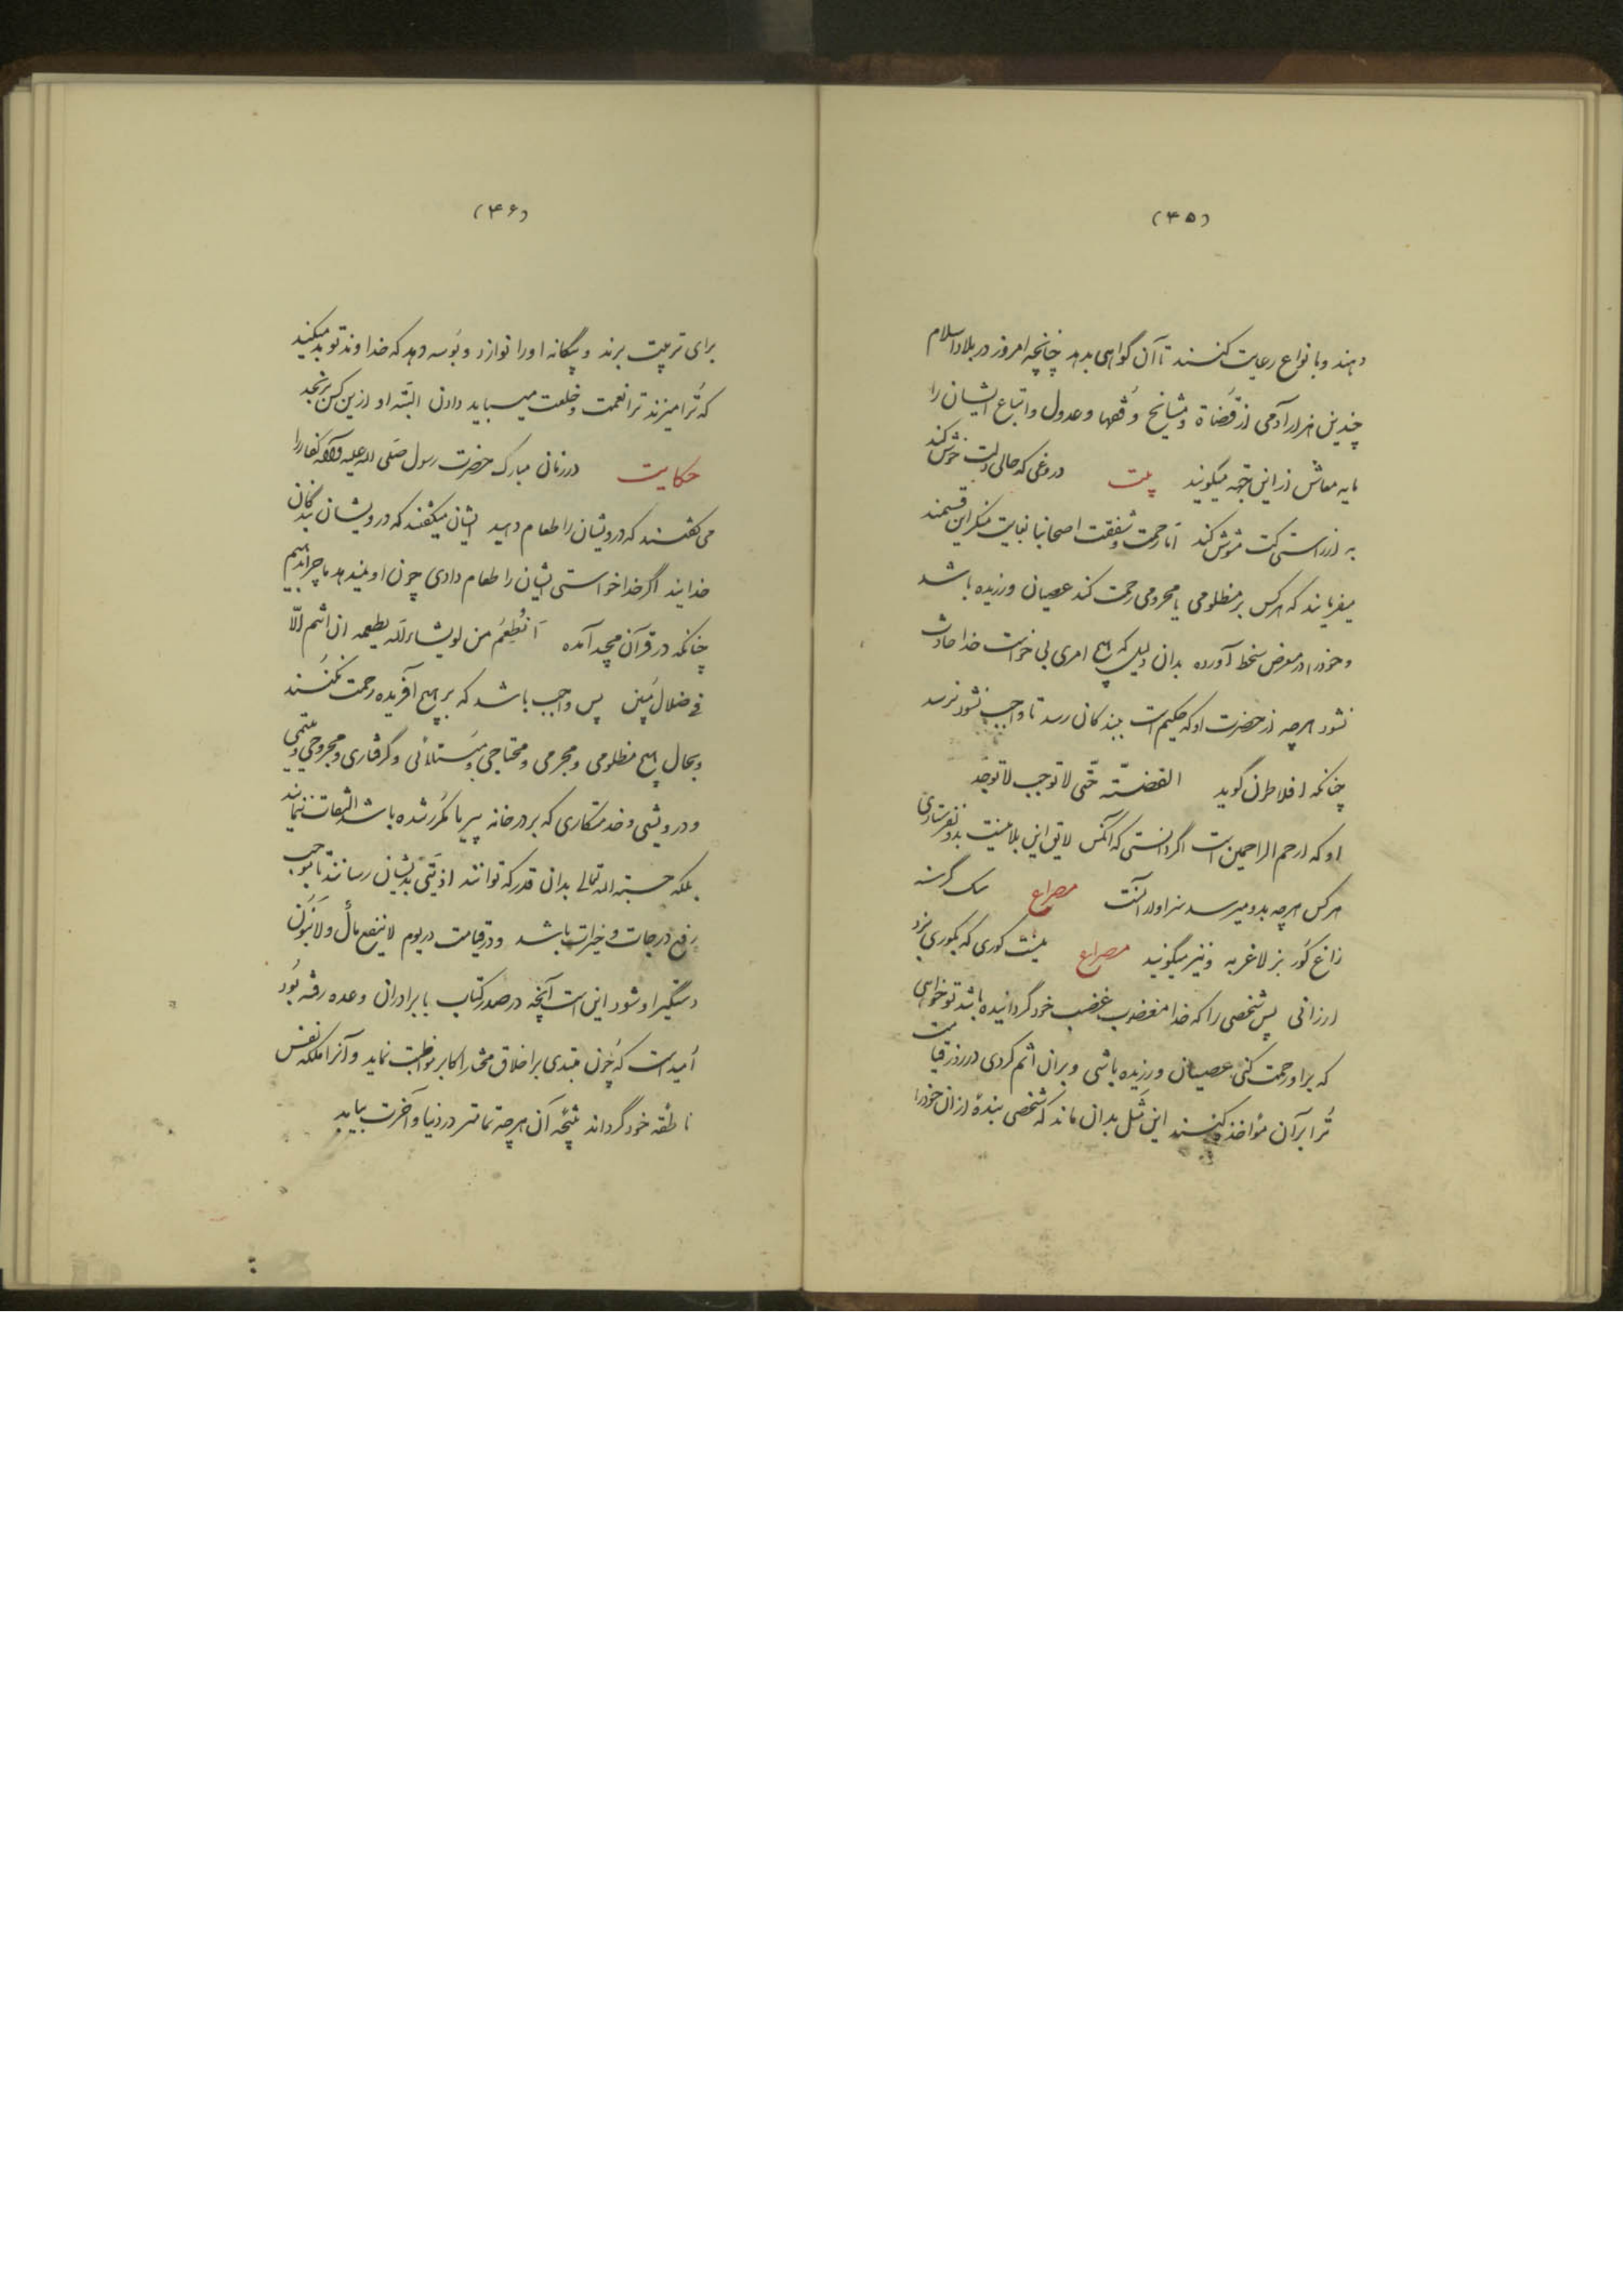 (۴۵)
دهند و بانواع رعایت کنند تا آن گواهی بدهد چنانچه امروز در بلاد اسلام
چندین هزار آدمی از قُضاة و مشایخ و فُقها و عدول و اتباع ایشان را
مایه معاش از این وجه میگویند بیت دروغی که حالی دلت خوش کند
به از راستی کت مشوش کند اما رحمت و شفقت اصحابنا بغایت منکر این قسمند
میفرمایند که هرکس بر مظلومی یا محرومی رحمت کند عصیان ورزیده باشد
و خود را در معرض سخط آورده بدان دلیل که هیچ امری بی خواست خدا حادث
نشود هرچه از حضرت او که حکیم است ببندکان رسد تا واجب نشود نرسد
چنانکه افلاطون گوید القضیّته حتّی لا توجب لا توجَد
او که ارحم الراحمین است اگر دانستی که آنکس لایق این بلا نیست بدو نفرستادی
هرکس هرچه بدو میرسد سزاوار آنست مصراع سک گرسنه
زاغ کُور بز لاغر به و نیز میگویند مصراع نیست کوری که بکوری نبود
ارزانی پس شخصی را که خدا مغضوب غضب خود گردانیده باشد تو خواهی
که بر او رحمت کنی عصیان ورزیده باشی و بران آثم کردی در روز قیامت
تُرا برآن مؤاخذ کنند این مَثَل بدان ماند که شخصی بندهٔ از ان خود را
(۴۶)
برای تربیت بزند و بیگانه او را نوازد و بُوسه دهد که خداوند تو بد میکند
که تُرا میزند ترا نعمت و خلعت میباید دادن البتّه او ازین کس برنجد
حکایت در زمان مبارک حضرت رسول صَلی الله علیه وآله کفار را
می گفتند که درویشان را طعام دهید ایشان میگفتند که درویشان بندگان
خدایند اگر خدا خواستی ایشان را طعام دادی چون او نمیدهد ما چرا بدهیم
چنانکه در قرآن مجید آمده اَنُطعِمُ من لو یشاءالله یطعمه ان انتم الّا
فی ضلالٍ مُبین پس واجب باشد که بر هیچ آفریده رحمت نکُنند
و بحال هیچ مظلومی و مجرمی و محتاجی و مبتلائی و گرفتاری و مجروحی و یتیمی
و درویشی و خدمتکاری که بر در خانه پیر یا مکرر شده باشد التفات ننمایند
بلکه حسبته الله تعالی بدان قدر که توانند اذیّتی بدیشان رسانند تا موجب
رفع درجات و خیرات باشد و در قیامت در یوم لا ینفع مالٌ و لا بنون
دستگیر او شود این است آنچه در صدر کتاب با برادران وعده رفته بُود
اُمید است که چُون مبتدی بر اخلاق مختار اکابر مواظبت نماید و آنرا ملکه نفس
ناطقه خود گرداند نتیجه آن هرچه تمامتر در دنیا و آخرت بیابد